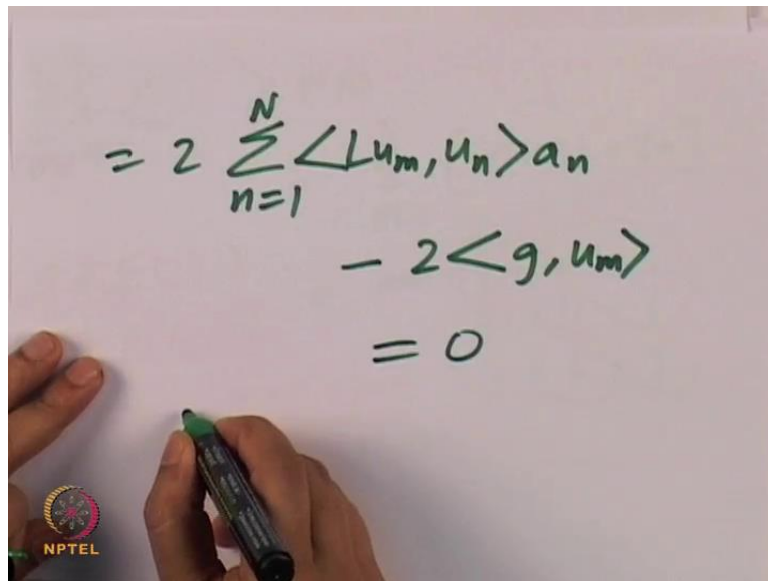 = 2 N∑n=1 <Lum, un> an
- 2 <g, um>
= 0
NPTEL